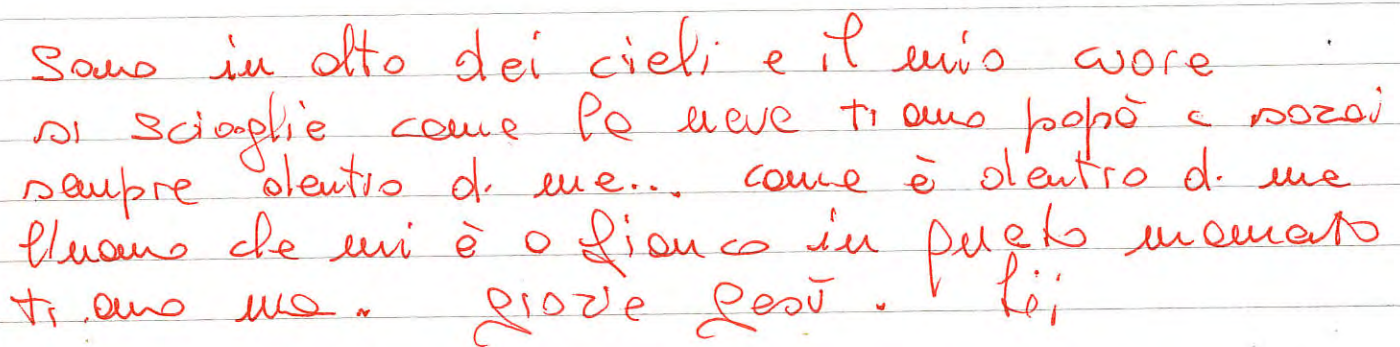 Sono in alto dei cieli e il mio cuore
si scioglie come la neve ti amo papà e sarai
sempre dentro di me... come è dentro di me
l'uomo che mi è a fianco in questo momento
ti amo ma. grazie Gesù. Lei